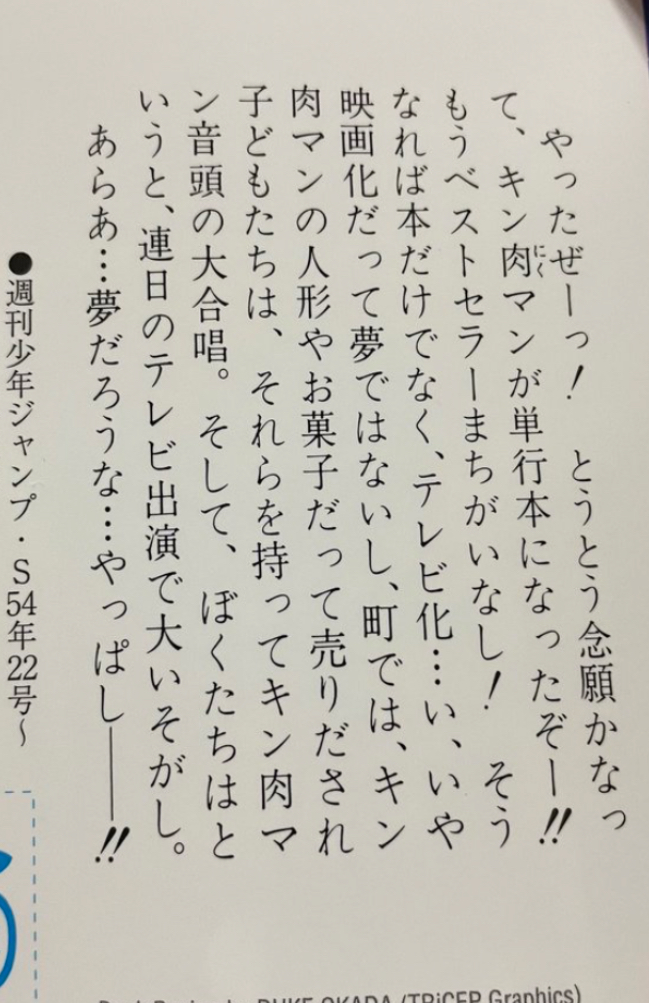 やったぜーっ！　とうとう念願かなっ
て、キン肉マンが単行本になったぞー!!
もうベストセラーまちがいなし！　そう
なれば本だけでなく、テレビ化…い、いや
映画化だって夢ではないし、町では、キン
肉マンの人形やお菓子だって売りだされ
子どもたちは、それらを持ってキン肉マ
ン音頭の大合唱。そして、ぼくたちはと
いうと、連日のテレビ出演で大いそがし。
あらあ…夢だろうな…やっぱし――!!
●週刊少年ジャンプ・S54年22号～
DUKE OKADA (TRiCEP Graphics)